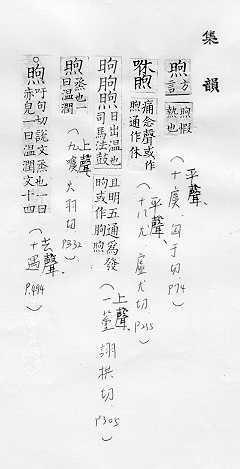 集韻
煦 方言煦煆熱也
(平聲、十虞 匈于切 P74)
咻煦 痛念聲或作煦通作休
(平聲、十八尤 虛尤切 P255)
昫煦 日出溫也司馬法鼓且明五通爲發昫或作朐煦
(上聲、一董 詡拱切 P305)
煦 烝也一曰溫潤
(上聲、九噳 火羽切 P332)
煦 吁句切說文烝也一曰赤皃一曰溫潤文十四
(去聲、十遇 P494)